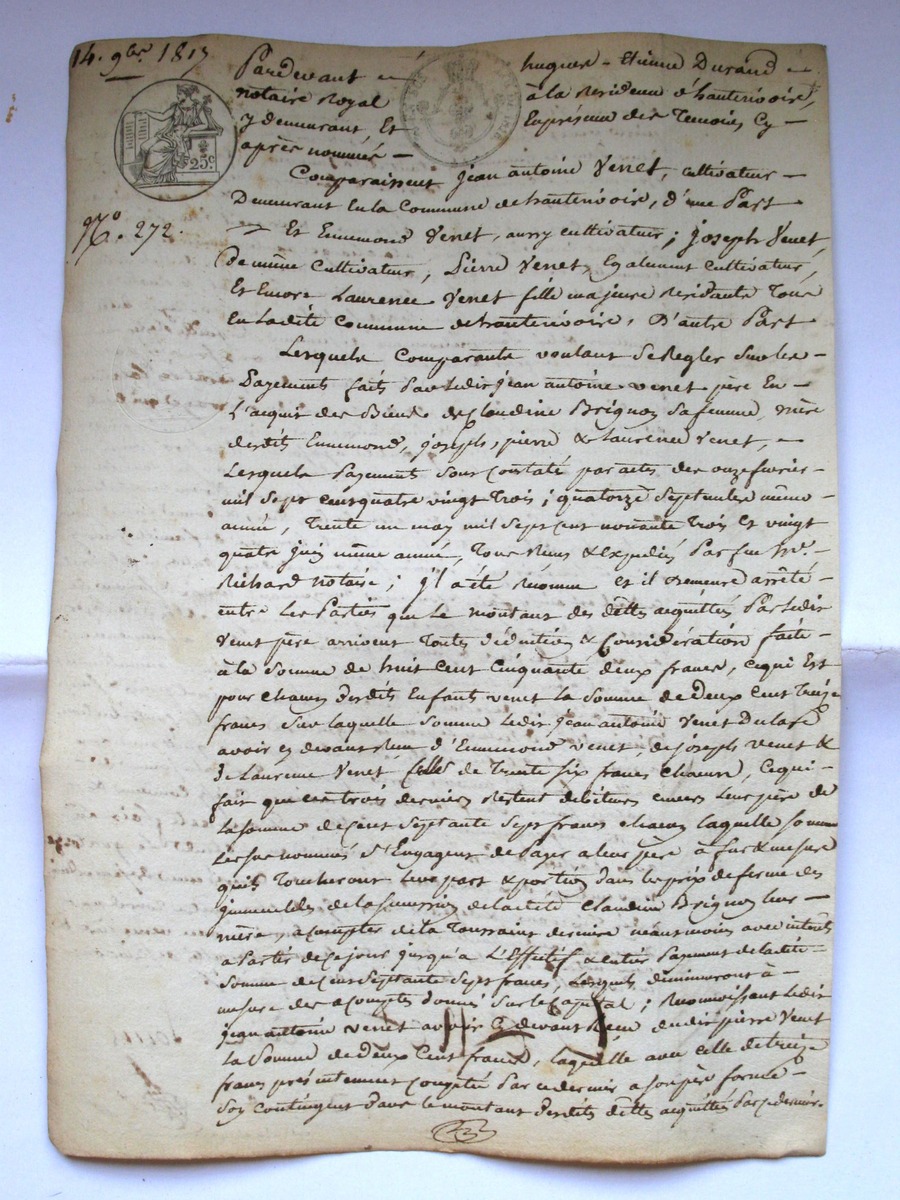 14. 9bre 1817
Pardevant hugues-Etienne Durand
notaire Royal à la Residence d'hauterivoire,
y demeurant, Et En presence des Temoins Cy-
après nommés
25c
No. 272.
Comparaissent jean antoine Venet, cultivateur
Demeurant En la Commune de hauterivoire, d'une Part
Et Ennemond Venet, aussy cultivateur; joseph Venet,
de même Cultivateur, Pierre Venet, Egalement Cultivateur,
Et Encore Laurence Venet fille majeure Residante Tous
En Ladite Commune de hauterivoire, D'autre Part
Lesquels Comparants voulant se Regler sur les
Payements faits Par Ledit jean antoine venet père En
L'acquit des Biens de Claudine Brignon sa femme, mère
desdits Ennemond, joseph, pierre & Laurence Venet,
Lesquels Payements sont Constaté par actes des onze fevrier
mil Sept Cent quatre vingt Trois; quatorze Septembre même
année, Trente un may mil Sept Cent nonante Trois et vingt
quatre juin même année, Tous Reçus & expediés Par feu Mr.
Richard notaire; il a été Reconnu et il demeure arrêté
entre Les Parties que Le montant des dettes acquittées Par Ledit
Venet père arrivent Toutes déductions & Considération faite
à la Somme de huit Cent Cinquante deux francs, Ce qui Est
pour Chacun desdits Enfants venet la Somme de Deux Cent Treize
francs Sur laquelle Somme Ledit jean antoine Venet Declare
avoir cy devant Reçu d'Ennemond Venet, de joseph venet &
de Laurence Venet, Celle de Trente Six francs Chacun, Ce qui
fait que Ces trois derniers Restent débiteurs envers Leur père de
la Somme de Cent Septante Sept francs Chacun laquelle Somme
Les Sus nommés S'Engagent de Payer a leur père à fur & mesure
qu'ils Toucheront Leur part & portion dans le prix de ferme des
immeubles de la Succession de ladite Claudine Brignon leur
mère, a Compter de la Toussaint derniere neanmoins avec intérêts
a Partir de Ce jour jusqu'à L'Effectif & entier Payement de ladite
Somme de Cent Septante Sept francs, Lesquels diminueront à
mesure des a Comptes donnés Sur le Capital; Reconnoissant Ledit
jean antoine Venet avoir Cy devant Reçu dudit pierre Venet
la Somme de Deux Cent francs, laquelle avec Celle de treize
francs présentement Comptée Par ce dernier a Son père forme
Son Contingent dans le montant desdits dettes acquittées Par ce dernier.